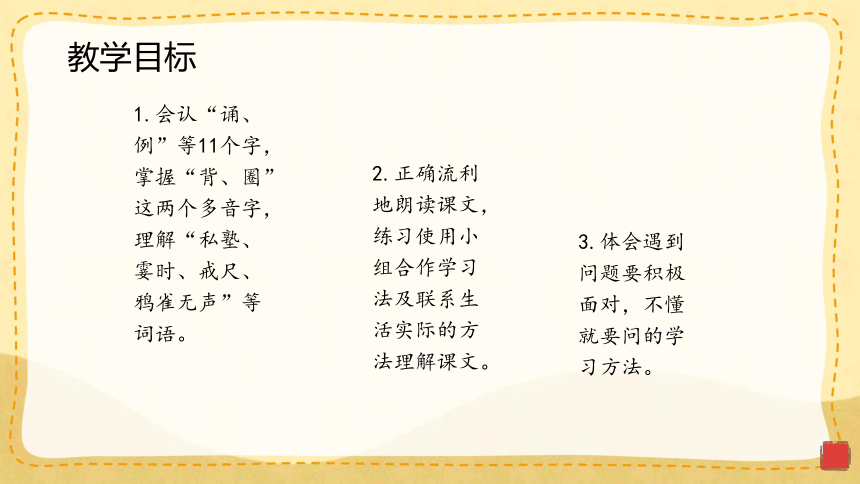 教学目标
1.会认“诵、
例”等11个字，
掌握“背、圈”
这两个多音字，
理解“私塾、
霎时、戒尺、
鸦雀无声”等
词语。
2.正确流利
地朗读课文，
练习使用小
组合作学习
法及联系生
活实际的方
法理解课文。
3.体会遇到
问题要积极
面对，不懂
就要问的学
习方法。